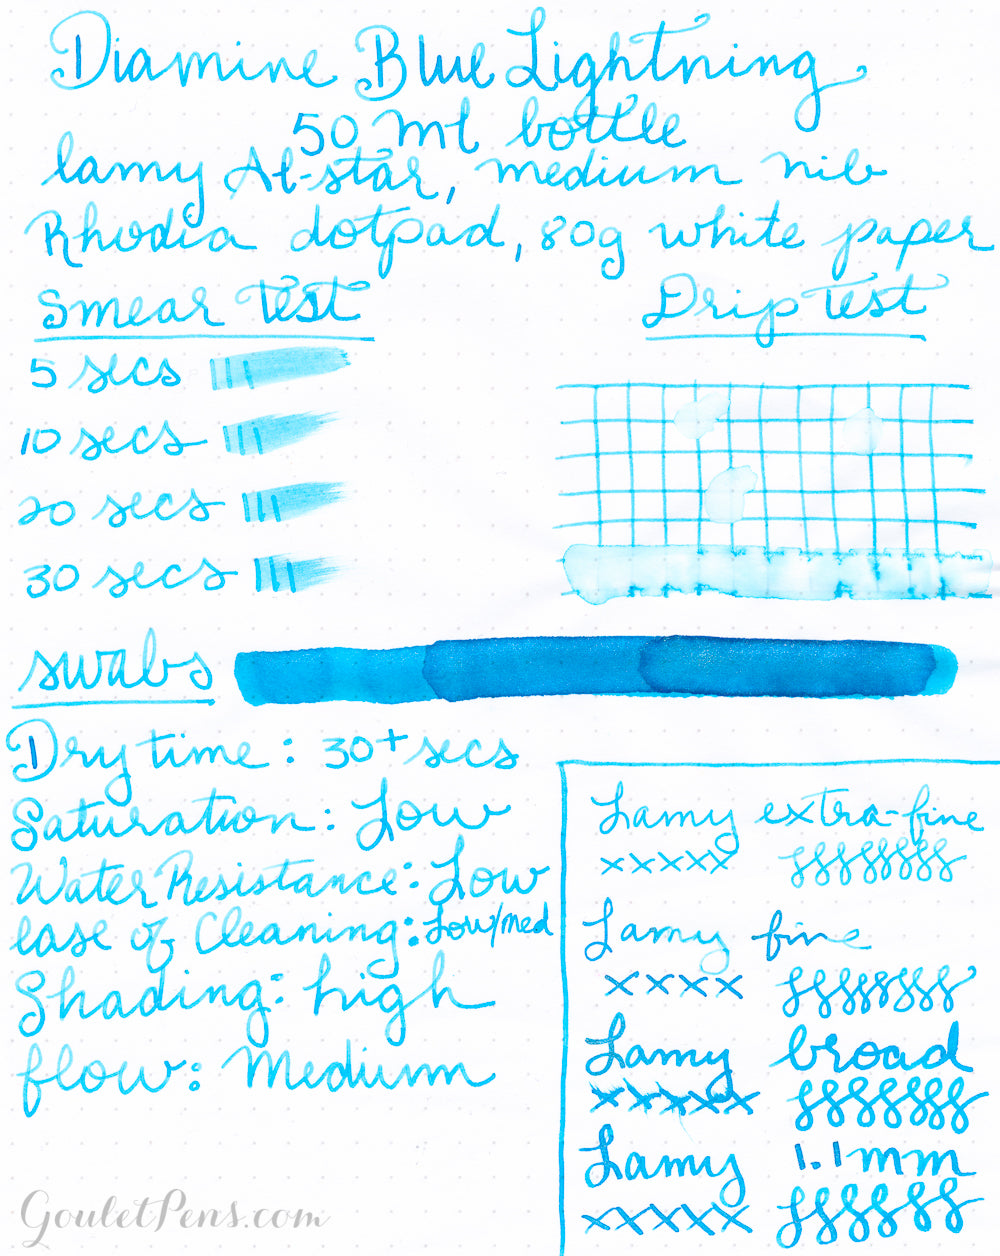 Diamine Blue Lightning
50 ml bottle
Lamy Al-star, medium nib
Rhodia dotpad, 80g white paper
Smear Test
5 secs
10 secs
20 secs
30 secs
Drip Test
swabs
Dry time: 30+ secs
Saturation: Low
Water Resistance: Low
ease of Cleaning: Low/med
Shading: high
flow: Medium
Lamy extra-fine
xxxxx
Lamy fine
xxxx
Lamy broad
xxxxx
Lamy 1.1mm
xxxxx
GouletPens.com